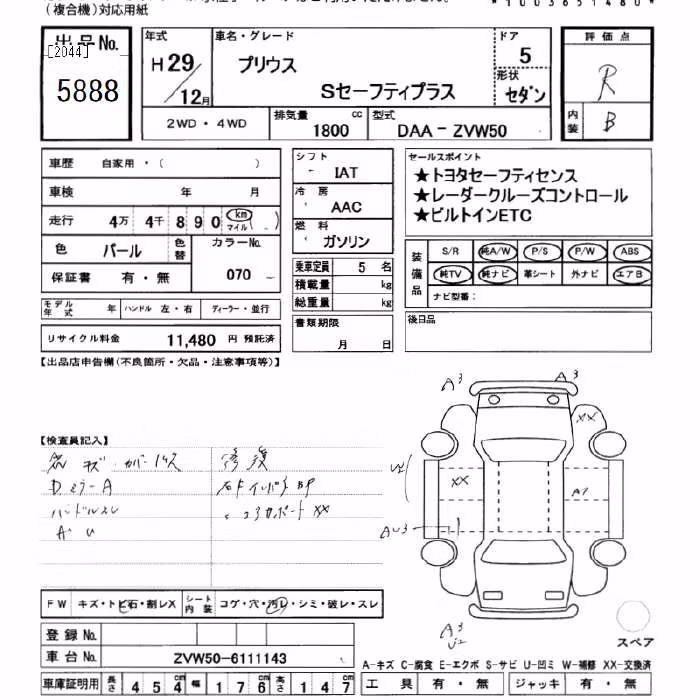 (複合機)対応用紙
*1003651480*
出品No.
[2044]
5888
年式
H29/12月
車名・グレード
プリウス
Sセーフティプラス
ドア
5
形状
セダン
評価点
R
内装
B
2WD・4WD
排気量
1800 cc
型式
DAA-ZVW50
車歴 自家用・( )
車検 年 月
走行 4万 4千 8 9 0 km マイル ( )
色 パール 色替
カラーNo.
070
保証書 有・無
モデル年式 年 ハンドル 左・右 ディーラー・並行
リサイクル料金 11,480 円 預託済
シフト
IAT
冷房
AAC
燃料
ガソリン
乗車定員 5 名
積載量 kg
総重量 kg
書類期限
月 日
セールスポイント
★トヨタセーフティセンス
★レーダークルーズコントロール
★ビルトインETC
装備品
S/R 純A/W P/S P/W ABS
純TV 純ナビ 革シート 外ナビ エアB
ナビ型番:
後日品
【出品店申告欄(不良箇所・欠品・注意事項等)】
【検査員記入】
キズ・カバー
修復
DミラーA
右ドインパネBP
ハンドルスレ
コアサポートXX
A U
A3
A3
XX
U2
XX
A1
AU3
A3
U2
FW キズ・トビ石・割レX
シート内装 コゲ・穴・汚レ・シミ・破レ・スレ
登録No.
車台No. ZVW50-6111143
車庫証明用 長さ 454cm 幅 176cm 高さ 147cm
スペア
A-キズ C-腐食 E-エクボ S-サビ U-凹ミ W-補修 XX-交換済
工具 有・無 ジャッキ 有・無